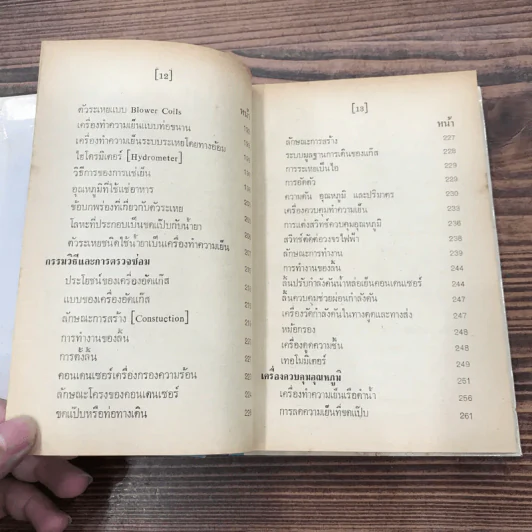 [12]
หน้า
ตัวระเหยแบบ Blower Coils
เครื่องทำความเย็นแบบท่อขนาน
เครื่องทำความเย็นระบบระเหยโดยทางอ้อม
ไฮโดรมิเตอร์ [Hydrometer]
วิธีการของการแช่เย็น
อุณหภูมิที่ใช้แช่อาหาร
ข้อบกพร่องที่เกี่ยวกับตัวระเหย
โลหะที่ประกอบเป็นขดแป๊บกับน้ำยา
ตัวระเหยชนิดใช้น้ำยาเป็นเครื่องทำความเย็น
กรรมวิธีและการตรวจซ่อม
ประโยชน์ของเครื่องอัดแก๊ส
แบบของเครื่องอัดแก๊ส
ลักษณะการสร้าง [Constuction]
การทำงานของลิ้น
การตั้งลิ้น
คอนเดนเซอร์เครื่องกรองความร้อน
ลักษณะโครงของคอนเดนเซอร์
ขดแป๊บหรือท่อทางเดิน
[13]
หน้า
ลักษณะการสร้าง 227
ระบบมูลฐานการเดินของแก๊ส 228
การระเหยเป็นไอ 229
การอัดตัว 229
ความดัน อุณหภูมิ และปริมาตร 230
เครื่องควบคุมทำความเย็น
การแต่งสวิทช์ควบคุมอุณหภูมิ 236
สวิทช์ตัดต่อวงจรไฟฟ้า
ลักษณะการทำงาน
การทำงานของลิ้น 244
ลิ้นปรับกำลังดันน้ำหล่อเย็นคอนเดนเซอร์ 244
ลิ้นควบคุมช่วยผ่อนกำลังดัน
เครื่องวัดกำลังดันในทางดูดและทางส่ง
หม้อกรอง 248
เครื่องดูดความชื้น
เทอโมมิเตอร์ 249
เครื่องควบคุมอุณหภูมิ 251
เครื่องทำความเย็นเรือดำน้ำ
การลดความเย็นที่ขดแป๊บ 261